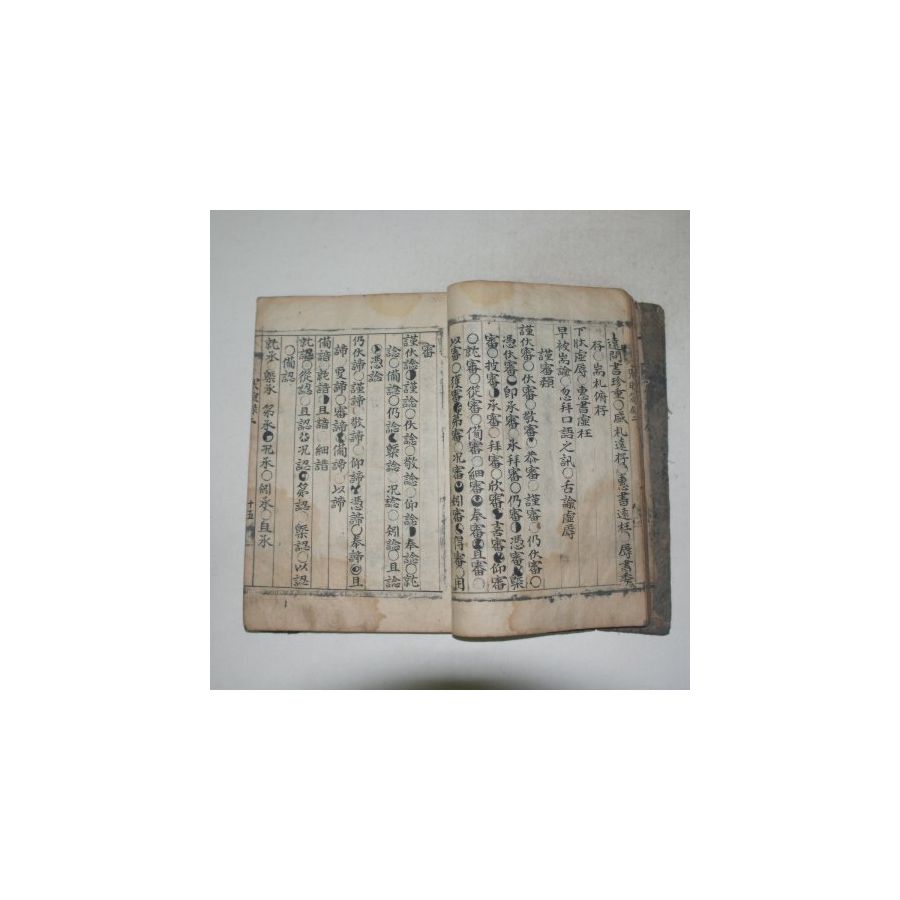 遠問書珍重○感札遠抵、惠書遠枉、辱書委
抵○耑札俯抵
下狀虛辱、惠書虛枉
早被耑諭○忽拜口語之訊○舌諭虛辱
謹審類
謹伏審○伏審○敬審○恭審○謹審○仍伏審○
憑伏審○即承審○承拜審○仍審○憑審○槩
審○披審○承審○拜審○欣審○審○仰審
○託審○從審○備審○細審○奉審○且審○
以審○獲審○第審○况審○矧審○得審○因
審
謹伏諗○謹諗○伏諗○敬諗○仰諗○奉諗○託
諗○備諗○仍諗○槩諗○况諗○矧諗○且諗
○憑諗
仍伏諦○謹諦○敬諦○仰諦○憑諦○奉諦○且
諦○愛諦○審諦○備諦○以諦
備諳○託諳○且諳○細諳
託認○從認○且認○况認○第認○槩認○以認
○備認
託承○槩承○第承○况承○矧承○且承
十五